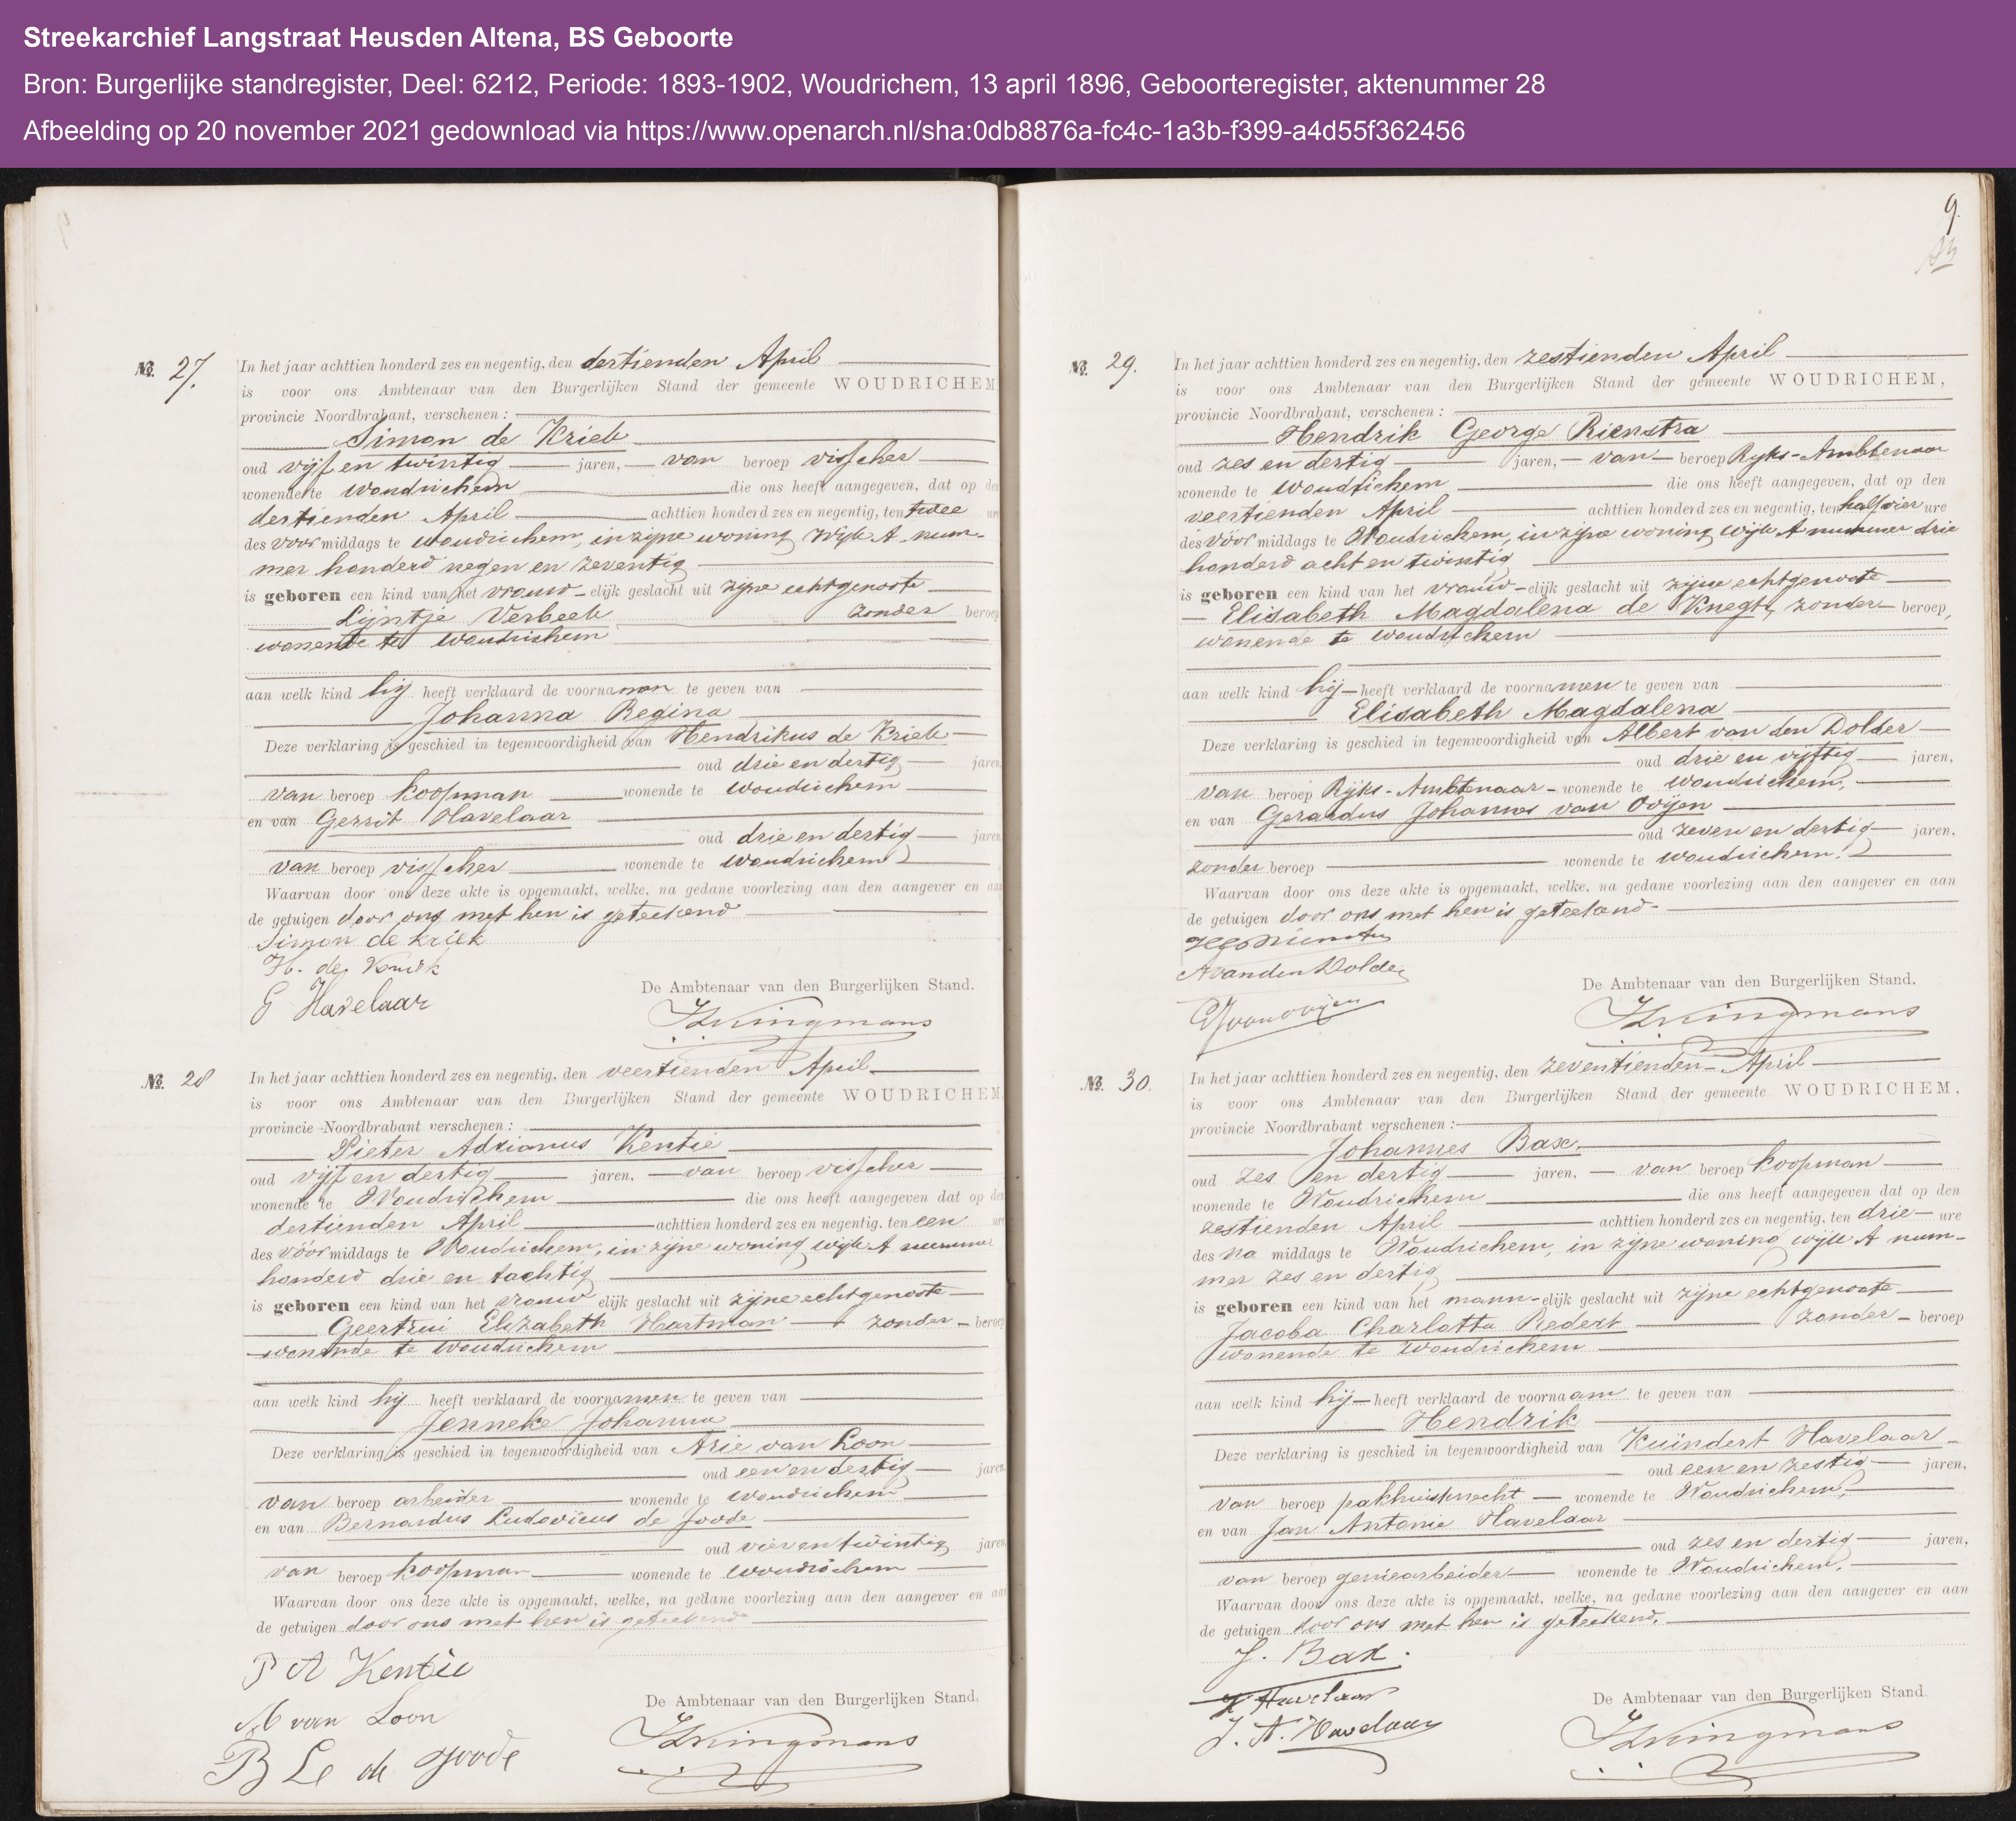 Streekarchief Langstraat Heusden Altena, BS Geboorte
Bron: Burgerlijke standregister, Deel: 6212, Periode: 1893-1902, Woudrichem, 13 april 1896, Geboorteregister, aktenummer 28
Afbeelding op 20 november 2021 gedownload via https://www.openarch.nl/sha:0db8876a-fc4c-1a3b-f399-a4d55f362456
No. 27.
In het jaar achttien honderd zes en negentig, den dertienden April
is voor ons Ambtenaar van den Burgerlijken Stand der gemeente WOUDRICHEM,
provincie Noordbrabant, verschenen:
Simon de Kriek
oud vijf en twintig jaren, van beroep visscher
wonende te Woudrichem die ons heeft aangegeven, dat op den
dertienden April achttien honderd zes en negentig, ten twee ure
des voormiddags te Woudrichem, in zijne woning Wijk A num-
mer honderd negen en zeventig
is geboren een kind van het vrouw-elijk geslacht uit zijne echtgenoote
Lijntje Verbeek zonder beroep
wonende te Woudrichem
aan welk kind hij heeft verklaard de voornamen te geven van
Johanna Regina
Deze verklaring is geschied in tegenwoordigheid van Hendrikus de Kriek
oud drie en dertig jaren
van beroep koopman wonende te Woudrichem
en van Gerrit Havelaar
oud drie en dertig jaren
van beroep visscher wonende te Woudrichem
Waarvan door ons deze akte is opgemaakt, welke, na gedane voorlezing aan den aangever en aan
de getuigen door ons met hen is geteekend
Simon de Kriek
H. de Kriek
G Havelaar
De Ambtenaar van den Burgerlijken Stand.
No. 28
In het jaar achttien honderd zes en negentig, den veertienden April
is voor ons Ambtenaar van den Burgerlijken Stand der gemeente WOUDRICHEM,
provincie Noordbrabant verschenen:
Pieter Adrianus Kentie
oud vijf en dertig jaren, van beroep visscher
wonende te Woudrichem die ons heeft aangegeven dat op den
dertienden April achttien honderd zes en negentig. ten een ure
des vóórmiddags te Woudrichem, in zijne woning wijk A nummer
honderd drie en tachtig
is geboren een kind van het vrouw elijk geslacht uit zijne echtgenoote
Geertrui Elizabeth Hartman zonder beroep
wonende te Woudrichem
aan welk kind hij heeft verklaard de voornamen te geven van
Jenneke Johanna
Deze verklaring is geschied in tegenwoordigheid van Arie van Loon
oud een en dertig jaren
van beroep arbeider wonende te Woudrichem
en van Bernardus Ludovicus de Joode
oud vier en twintig jaren
van beroep koopman wonende te Woudrichem
Waarvan door ons deze akte is opgemaakt, welke, na gedane voorlezing aan den aangever en aan
de getuigen door ons met hen is geteekend
P A Kentie
A van Loon
B Le de Joode
De Ambtenaar van den Burgerlijken Stand.
9.
No. 29.
In het jaar achttien honderd zes en negentig, den zestienden April
is voor ons Ambtenaar van den Burgerlijken Stand der gemeente WOUDRICHEM,
provincie Noordbrabant, verschenen:
Hendrik George Rienstra
oud zes en dertig jaren, van beroep Ryks-Ambtenaar
wonende te Woudrichem die ons heeft aangegeven, dat op den
veertienden April achttien honderd zes en negentig, ten half vier ure
des vóórmiddags te Woudrichem, in zijne woning wijk A nummer drie
honderd acht en twintig
is geboren een kind van het vrouw-elijk geslacht uit zijne echtgenoote
Elisabeth Magdalena de Knegt, zonder beroep,
wonende te Woudrichem
aan welk kind hij heeft verklaard de voornamen te geven van
Elisabeth Magdalena
Deze verklaring is geschied in tegenwoordigheid van Albert van den Dolder
oud drie en vijftig jaren,
van beroep Rijks-Ambtenaar wonende te Woudrichem,
en van Gerardus Johannes van Ooijen
oud zeven en dertig jaren,
zonder beroep wonende te Woudrichem.
Waarvan door ons deze akte is opgemaakt, welke, na gedane voorlezing aan den aangever en aan
de getuigen door ons met hen is geteekend
A van den Dolder
De Ambtenaar van den Burgerlijken Stand.
No. 30.
In het jaar achttien honderd zes en negentig, den zeventienden April
is voor ons Ambtenaar van den Burgerlijken Stand der gemeente WOUDRICHEM,
provincie Noordbrabant verschenen:
Johannes Bax.
oud zes en dertig jaren, van beroep koopman
wonende te Woudrichem die ons heeft aangegeven dat op den
zestienden April achttien honderd zes en negentig. ten drie ure
des na middags te Woudrichem, in zijne woning wijk A num-
mer zes en dertig
is geboren een kind van het mann-elijk geslacht uit zijne echtgenoote
Jacoba Charlotta Redert zonder beroep
wonende te Woudrichem
aan welk kind hij heeft verklaard de voornaam te geven van
Hendrik
Deze verklaring is geschied in tegenwoordigheid van Kuindert Havelaar
oud een en zestig jaren,
van beroep pakhuisknecht wonende te Woudrichem,
en van Jan Antonie Havelaar
oud zes en dertig jaren,
van beroep geniearbeider wonende te Woudrichem,
Waarvan door ons deze akte is opgemaakt, welke, na gedane voorlezing aan den aangever en aan
de getuigen door ons met hen is geteekend.
J. Bax.
Havelaar
J. A. Havelaar
De Ambtenaar van den Burgerlijken Stand.